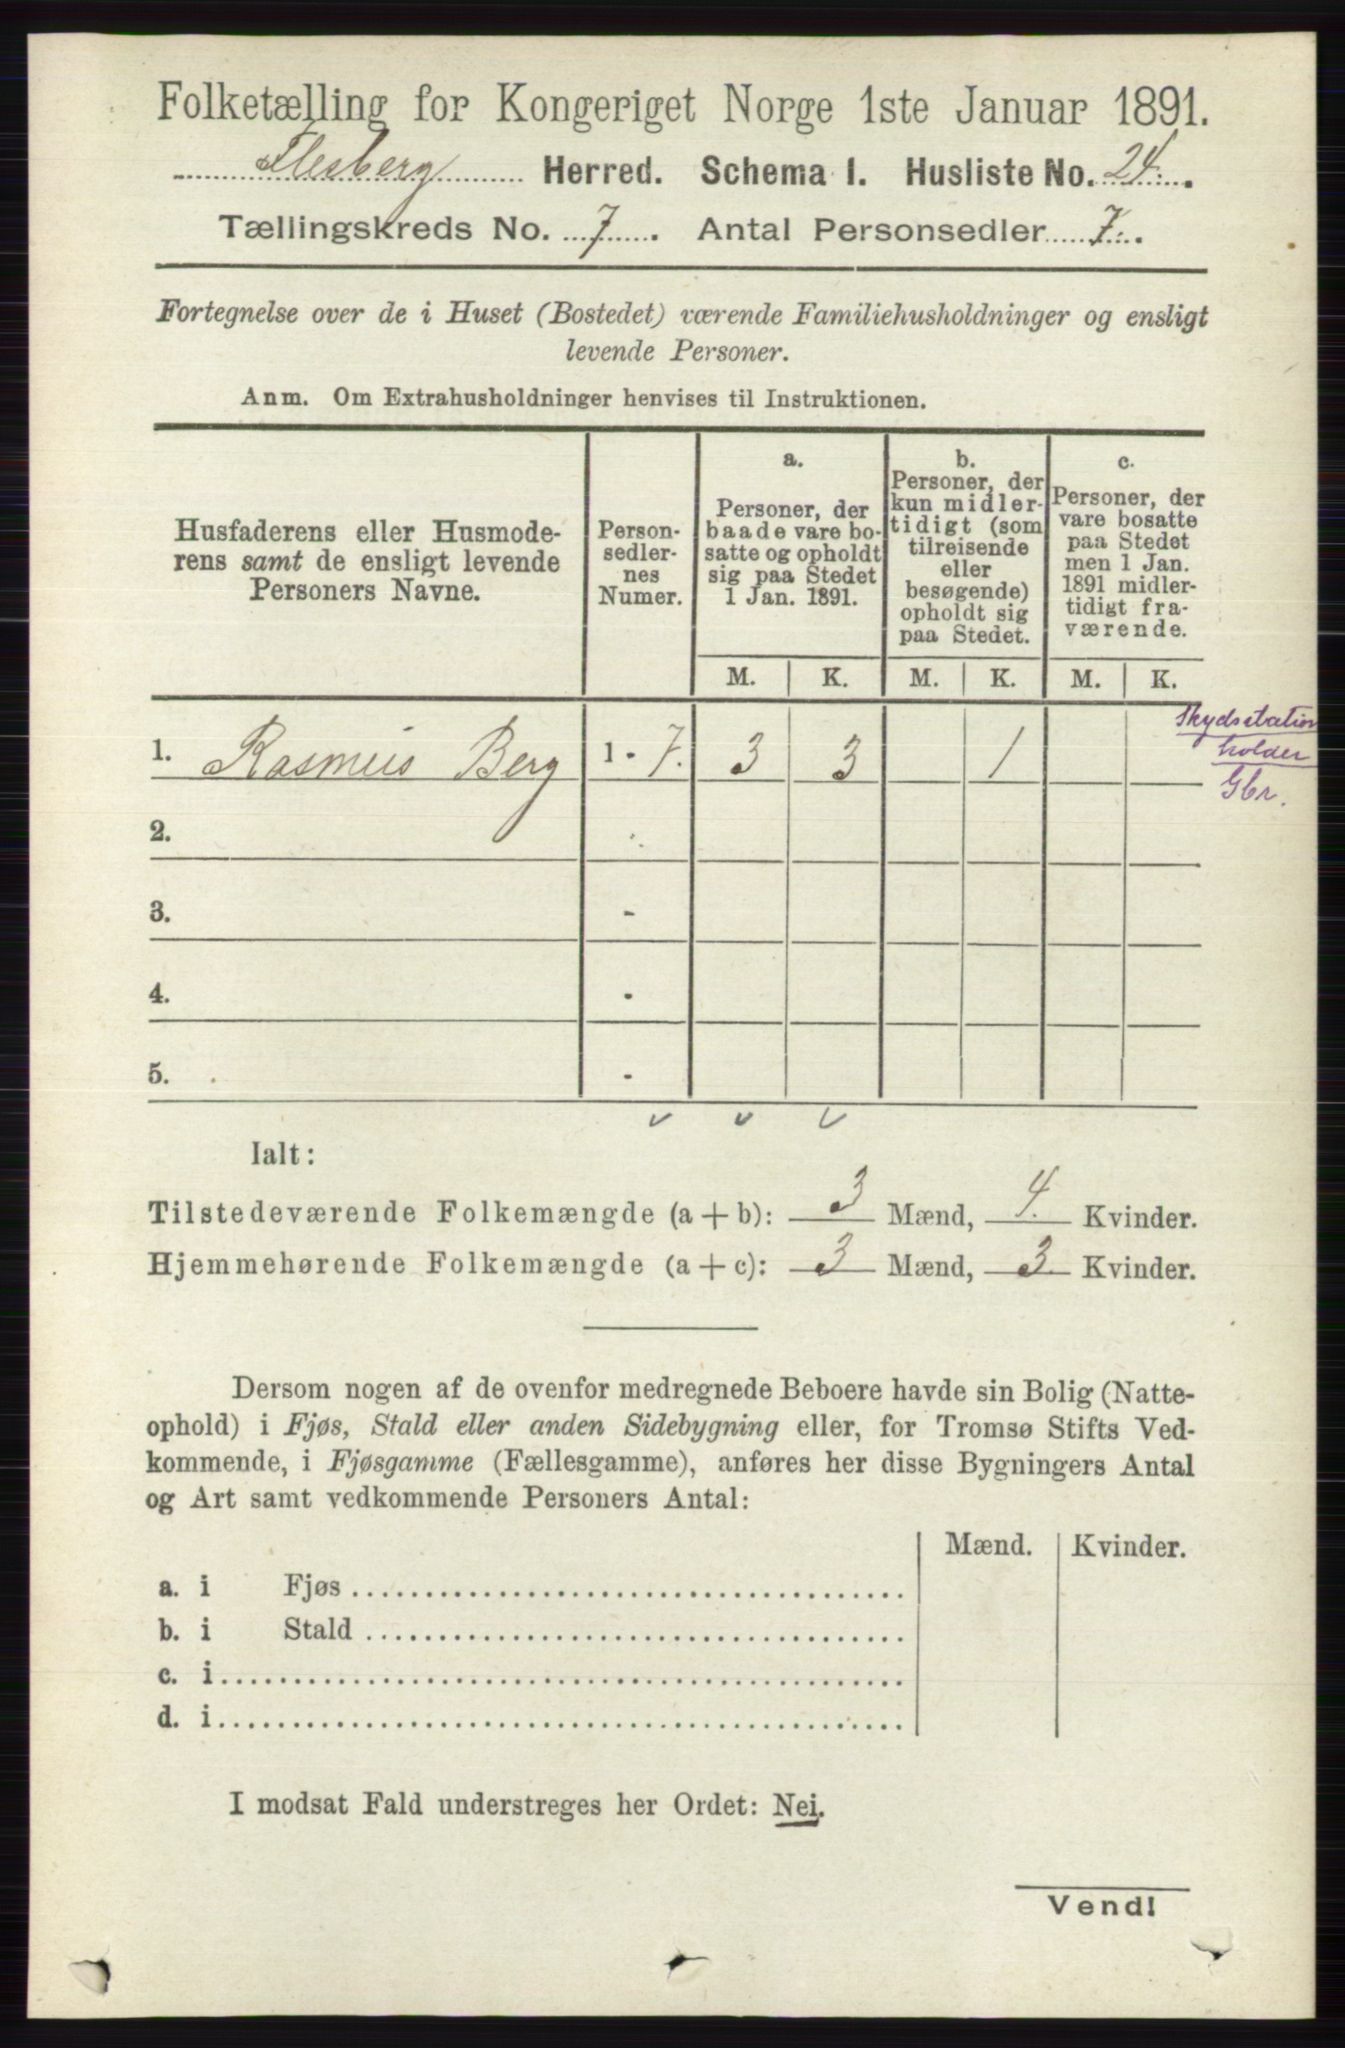 Folketælling for Kongeriget Norge 1ste Januar 1891.
Flesberg Herred. Schema I. Husliste No. 24.
Tællingskreds No. 7. Antal Personsedler 7.
Fortegnelse over de i Huset (Bostedet) værende Familiehusholdninger og ensligt
levende Personer.
Anm. Om Extrahusholdninger henvises til Instruktionen.
Husfaderens eller Husmode-
rens samt de ensligt levende
Personers Navne.
Person-
sedler-
nes
Numer.
a.
Personer, der
baade vare bo-
satte og opholdt
sig paa Stedet
1 Jan. 1891.
b.
Personer, der
kun midler-
tidigt (som
tilreisende
eller
besøgende)
opholdt sig
paa Stedet.
c.
Personer, der
vare bosatte
paa Stedet
men 1 Jan.
1891 midler-
tidigt fra-
værende.
M. K. M. K. M. K.
1. Rasmus Berg 1 - 7. 3 3 1
Skydsstation
holder
Gbr.
2.
3. -
4. -
5. -
Ialt:
Tilstedeværende Folkemængde (a + b): 3 Mænd, 4. Kvinder.
Hjemmehørende Folkemængde (a + c): 3 Mænd, 3. Kvinder.
Dersom nogen af de ovenfor medregnede Beboere havde sin Bolig (Natte-
ophold) i Fjøs, Stald eller anden Sidebygning eller, for Tromsø Stifts Ved-
kommende, i Fjøsgamme (Fællesgamme), anføres her disse Bygningers Antal
og Art samt vedkommende Personers Antal:
Mænd. Kvinder.
a. i Fjøs
b. i Stald
c. i
d. i
I modsat Fald understreges her Ordet: Nei.
Vend!